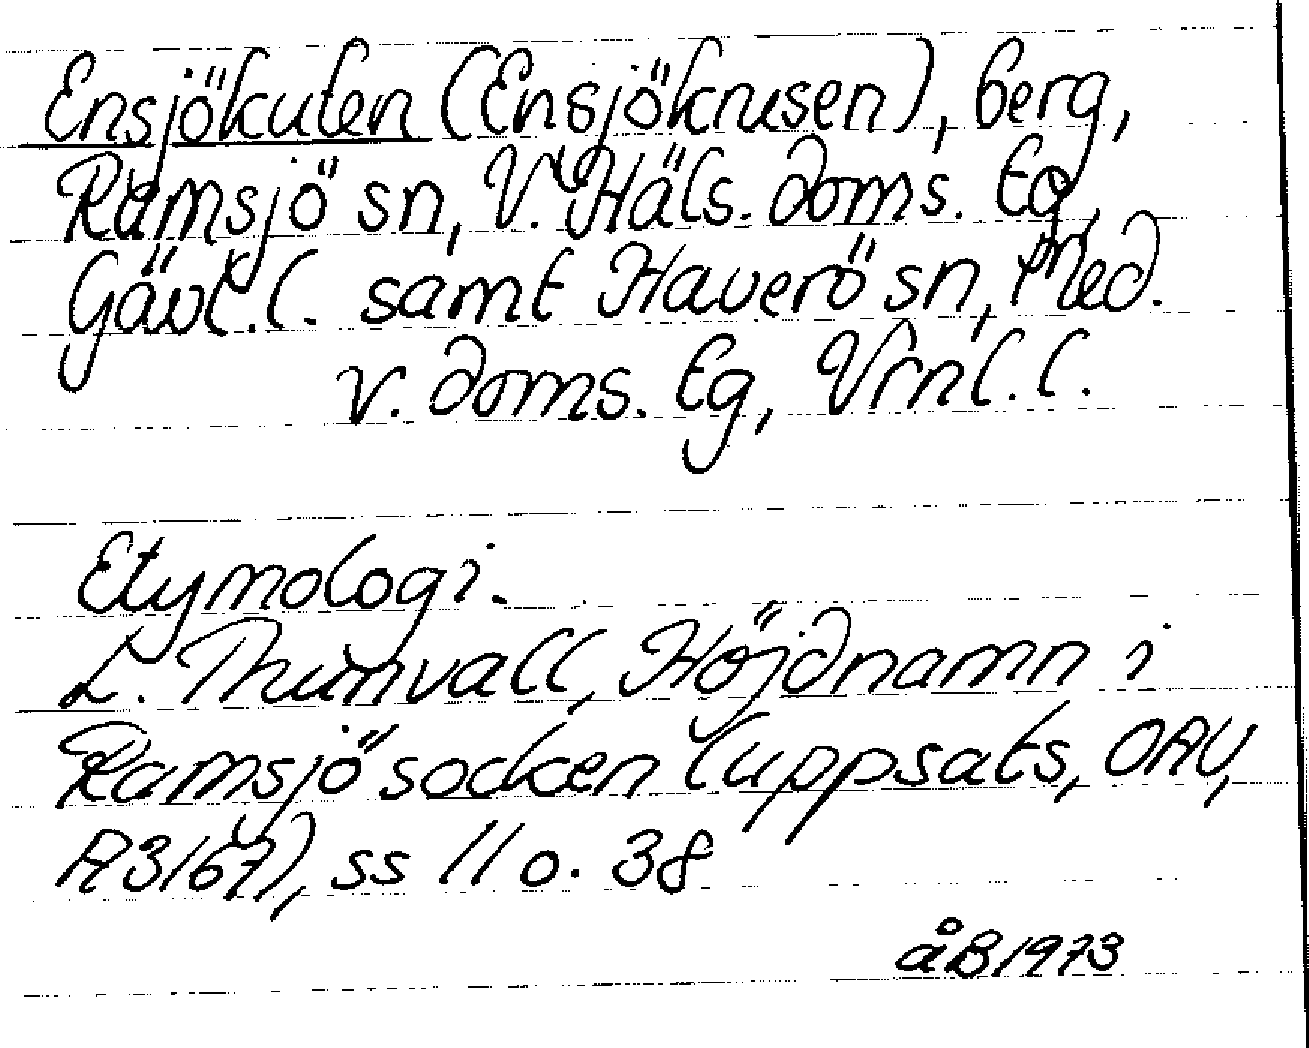 Ensjökuten (Ensjöknusen), berg,
Ramsjö sn, V. Häls. doms. tg,
Gävl. l. samt Haverö sn, Med.
v. doms. tg, Vrnl. l.
Etymologi.
L. Thunvall, Höjdnamn i
Ramsjö socken (uppsats, OAU,
A3167), ss 11 o. 38
åB 1973